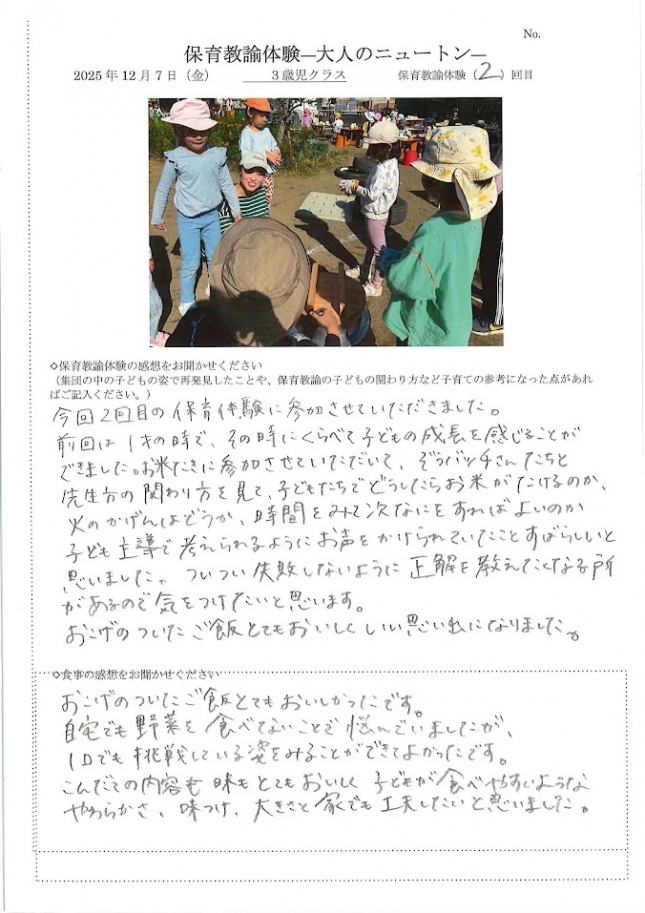 No.
保育教諭体験―大人のニュートン―
2025年12月7日（金） 3歳児クラス 保育教諭体験（2）回目
◇保育教諭体験の感想をお聞かせください
（集団の中の子どもの姿で再発見したことや、保育教諭の子どもの関わり方など子育ての参考になった点があれ
ばご記入ください。）
今回2回目の保育体験に参加させていただきました。
前回は1才の時で、その時にくらべて子どもの成長を感じることが
できました。お米たきに参加させていただいて、ぞうバッチさんたちと
先生方の関わり方を見て、子どもたちでどうしたらお米がたけるのか、
火のかげんはどうか、時間をみて次なにをすればよいのか
子ども主導で考えられるようにお声をかけられていたことすばらしいと
思いました。ついつい失敗しないように正解を教えたくなる所
があるので気をつけたいと思います。
おこげのついたご飯とてもおいしくいい思い出になりました。
◇食事の感想をお聞かせください
おこげのついたご飯とてもおいしかったです。
自宅でも野菜を食べてないことで悩んでいましたが、
1口でも挑戦している姿をみることができてよかったです。
こんだての内容も味もとてもおいしく子どもが食べやすいような
やわらかさ、味つけ、大きさと家でも工夫したいと思いました。